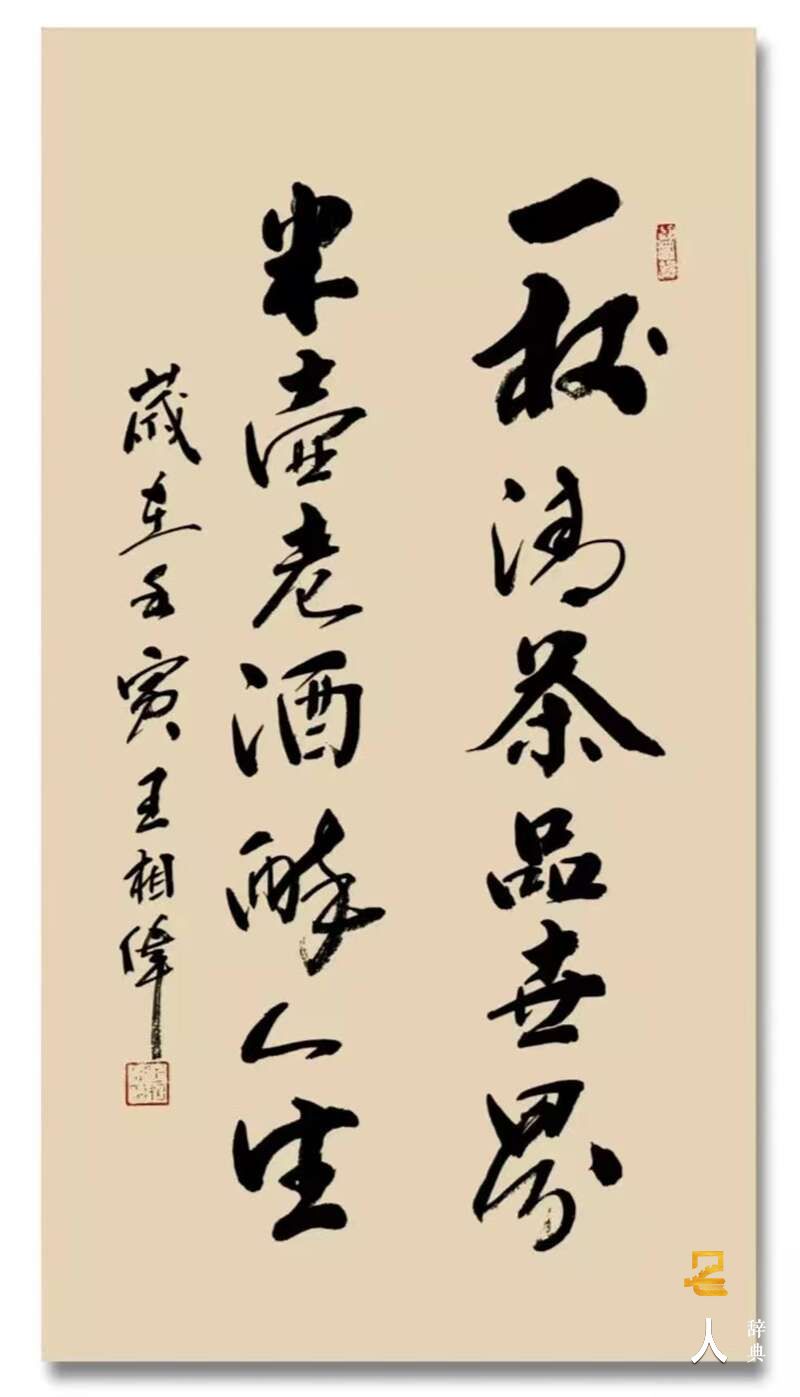 一杯清茶品世界
半壶老酒醉人生
歲在壬寅王相偉
名人
辞典